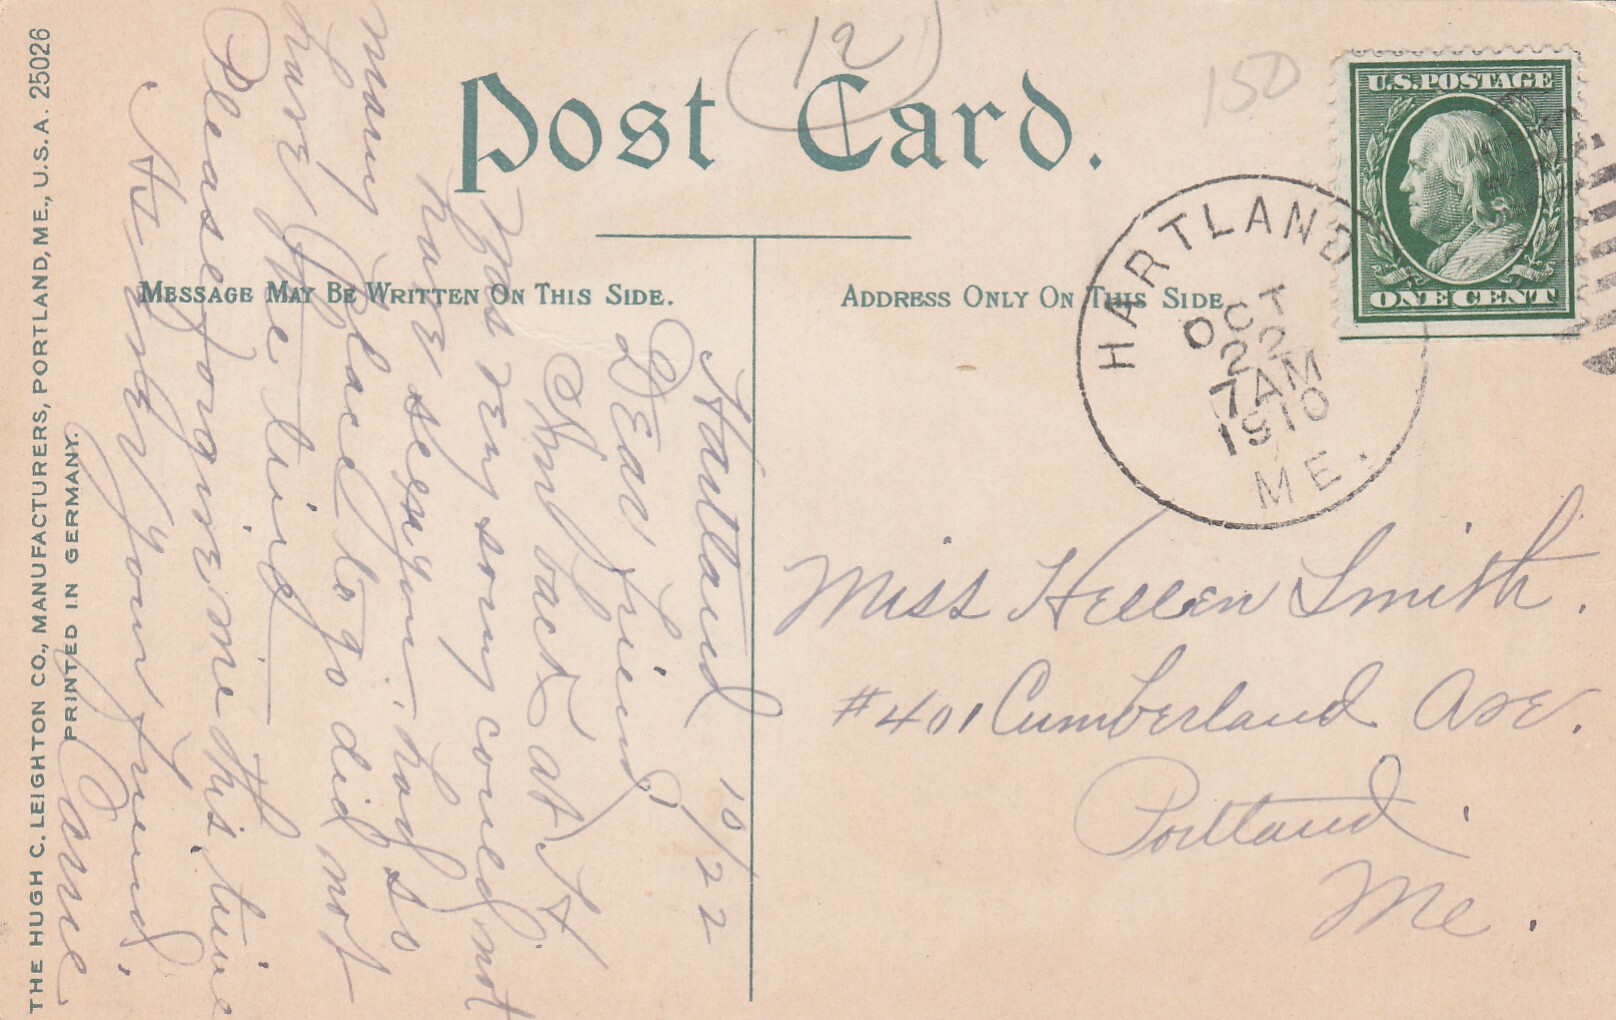 THE HUGH C. LEIGHTON CO., MANUFACTURERS, PORTLAND, ME., U.S.A. 25026
PRINTED IN GERMANY.
(12)
150
Post Card.
MESSAGE MAY BE WRITTEN ON THIS SIDE.
ADDRESS ONLY ON THIS SIDE
U.S. POSTAGE
ONE CENT
HARTLAND
OCT
22
7 AM
1910
ME.
Hartland 10/22
Dear friend
Am back at H
Was very sorry could not
have seen you, had so
many place to go did not
have the time
Please forgive me this time
As ever your friend,
Miss Hellen Smith.
#401 Cumberland Ave.
Portland
Me.